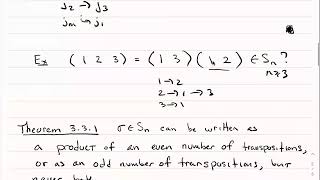 j₂ → j₃
jₘ → j₁
Ex (1 2 3) = (1 3)(1 2) ∈ Sₙ ?
n≥3
1→2
2→1→3
3→1
Theorem 3.3.1 σ∈Sₙ can be written as
a product of an even number of transpositions,
or as an odd number of transpositions, but
never both